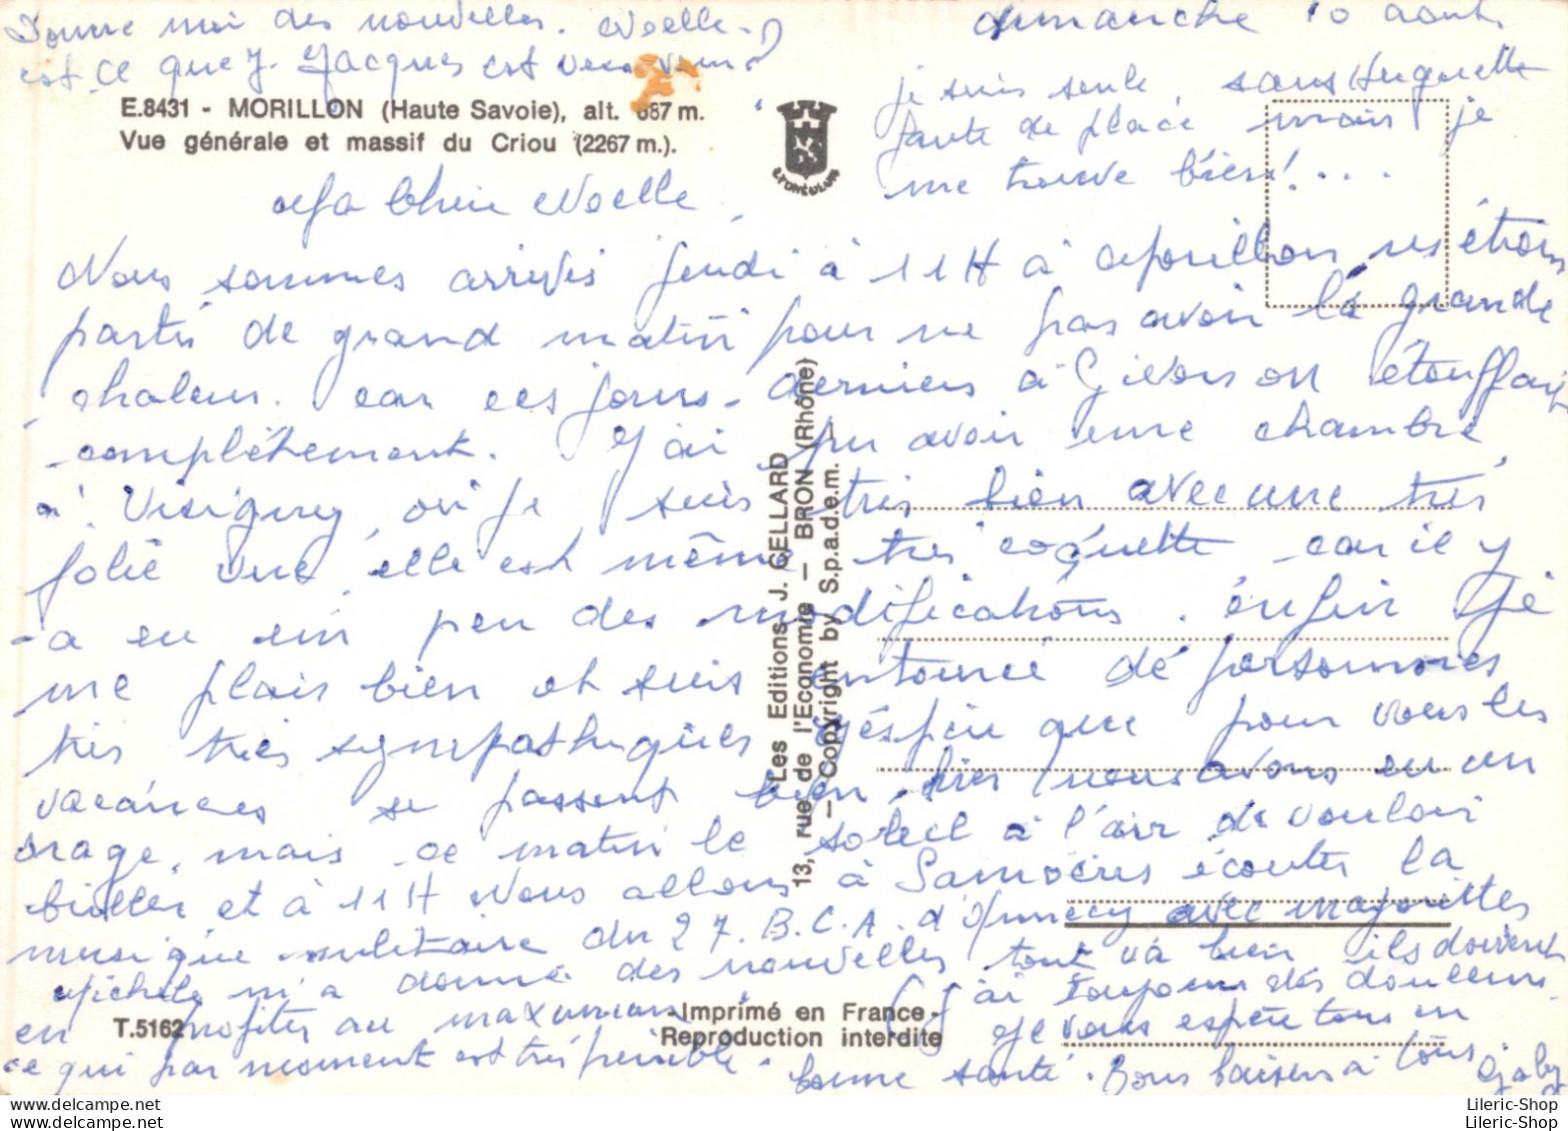 Donne moi des nouvelles. Noelle -
est-ce que J. Jacques est venu
dimanche 10 aout
E.8431 - MORILLON (Haute Savoie), alt. 687 m.
Vue générale et massif du Criou (2267 m.).
je suis seule, sans Huguette
faute de place mais je
me trouve bien!...
Ma Chère Noelle,
Nous sommes arrivés Jeudi à 11H à Morillon, ns étions
partis de grand matin pour ne pas avoir la grande
chaleur. car ces jours-derniers à Givors on étouffait
complètement. J'ai pu avoir une chambre
à Vérigny, où je suis très bien avec une très
jolie vue elle est même très coquette car il y
a eu un peu des modifications. enfin je
me plais bien et suis entource de personnes
très très sympathiques j'espère que pour vous les
vacances se passent bien. hier nous avons eu un
orage, mais ce matin le soleil a l'air de vouloir
briller et à 11H Nous allons à Samoens écouter la
musique militaire du 27. B.C.A. d'Annecy avec majorettes
Michele m'a donné des nouvelles tout va bien ils doivent
en profiter au maximum. (J'ai toujours des douleurs
ce qui par moment est très pénible. Je vous espère tous en
bonne santé. Bons baisers à tous Gaby
LYONCOLOR
Les Editions J. CELLARD
13, rue de l'Economie — BRON (Rhône)
— Copyright by S.p.a.d.e.m. —
T.5162
- Imprimé en France -
Reproduction interdite
Lileric-Shop
Lileric-Shop